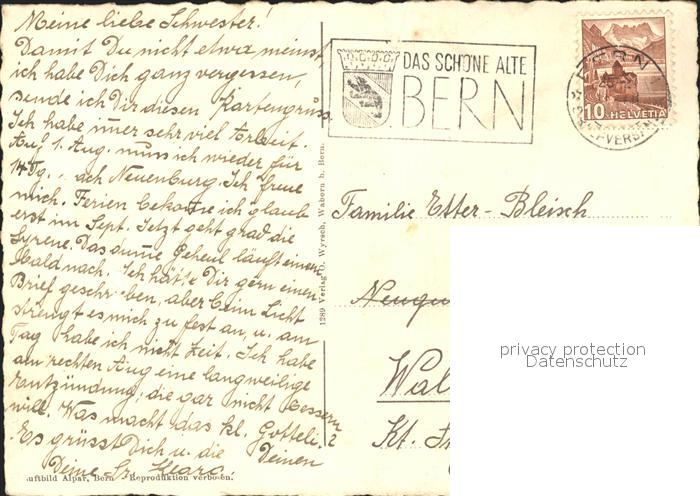 Meine liebe Schwester!
Damit Du nicht etwa meinst
ich habe Dich ganz vergessen,
sende ich Dir diesen Kartengruss.
Ich habe imer sehr viel Arbeit.
Auf 1. Aug. muss ich wieder für
14 Tg. ach Neuenburg. Ich freue
mich. Ferien bekome ich glaub
erst im Sept. Jetzt geht grad die
Syrene. Das dume Geheul läuft einem
bald nach. Ich hätte Dir gern einen
Brief geschr eben, aber beim Licht
strengt es mich zu fest an, u. am
Tag habe ich nicht Zeit. Ich habe
am rechten Aug eine langweilige
entzündung, die gar nicht bessern
will. Was macht das kl. Gotteli?
Es grüsst Dich u. die Deinen
Deine Sr. Klara.
uftbild Alpar, Bern Reproduktion verboten.
1289 Verlag O. Wyrsch, Wabern b. Bern.
DAS SCHÖNE ALTE
BERN
BERN
10 HELVETIA
Familie Etter-Bleisch
Neuqu
Wal
Kt.
privacy protection
Datenschutz